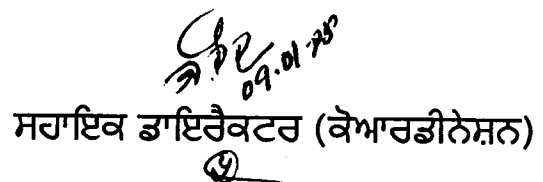 09.01.25
ਸਹਾਇਕ ਡਾਇਰੈਕਟਰ (ਕੋਆਰਡੀਨੇਸ਼ਨ)